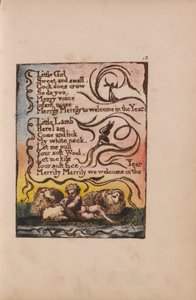 15
Little Girl
Sweet and small
Cock does crow
So do you.
Merry voice
Infant noise
Merrily Merrily to welcome in the Year.
Little Lamb
Here I am.
Come and lick
My white neck.
Let me pull
Your soft Wool.
Let me kiss
Your soft face
Merrily Merrily we welcome in the
Year